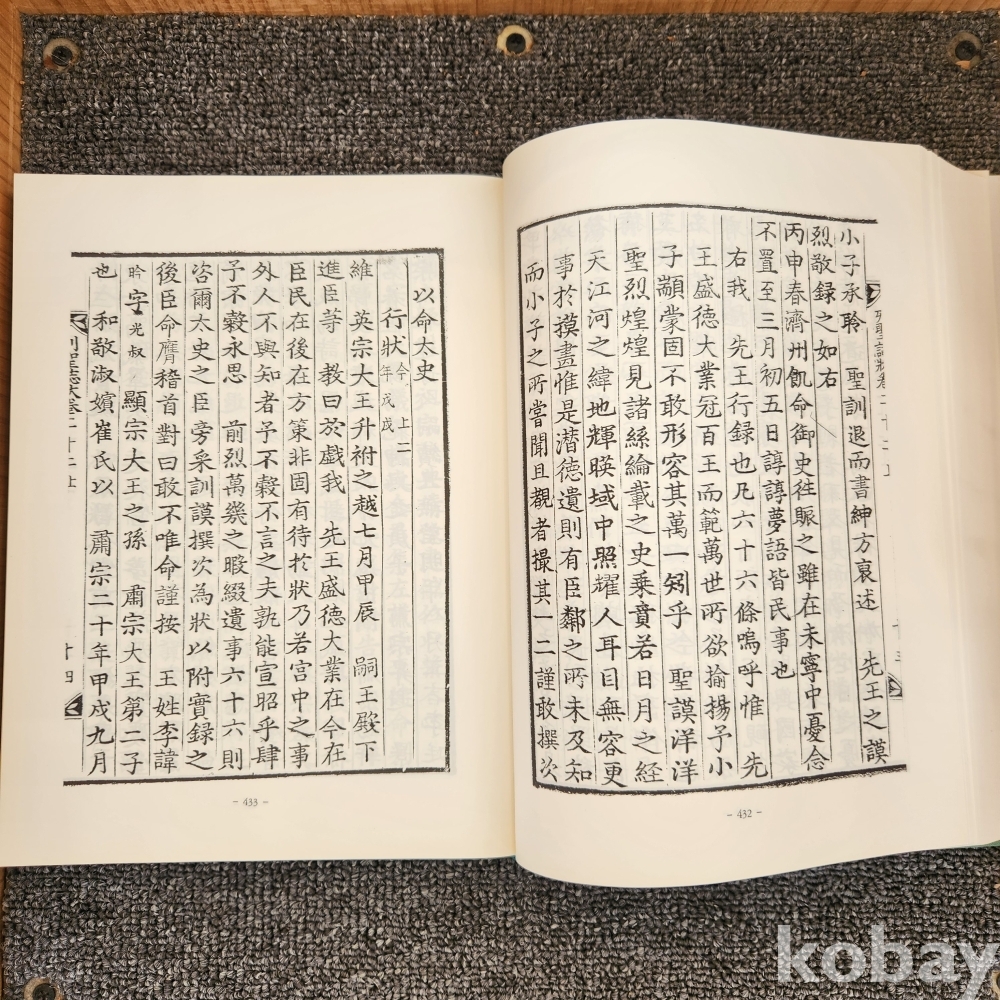 小子承聆 聖訓退而書紳方哀述 先王之謨
烈敬録之如右
丙申春濟州飢命御史徃賑之雖在未寧中憂念
不置至三月初五日諄諄夢語皆民事也
右我 先王行録也凡六十六條嗚呼惟 先
王盛徳大業冠百王而範萬世所欲揄揚予小
子顓蒙固不敢形容其萬一矧乎 聖謨洋洋
聖烈煌煌見諸絲綸載之史乘賁若日月之經
天江河之緯地輝暎域中照耀人耳目無容更
事於摸畫惟是潜徳遺則有臣鄰之所未及知
而小子之所嘗聞且覩者撮其一二謹敢撰次
十三
- 432 -
以命太史
行狀 今上二年戊戌
維 英宗大王升祔之越七月甲辰 嗣王殿下
進臣等 教曰於戱我 先王盛徳大業在今在
臣民在後在方策非固有待於狀乃若宫中之事
外人不與知者予不穀不言之夫孰能宣昭乎肆
予不穀永思 前烈萬幾之暇綴遺事六十六則
咨爾太史之臣旁采訓謨撰次為狀以附實録之
後臣命膺稽首對曰敢不唯命謹按 王姓李諱
昑字光叔 顯宗大王之孫 肅宗大王第二子
也 和敬淑嬪崔氏以 肅宗二十年甲戌九月
十四
- 433 -
kobay